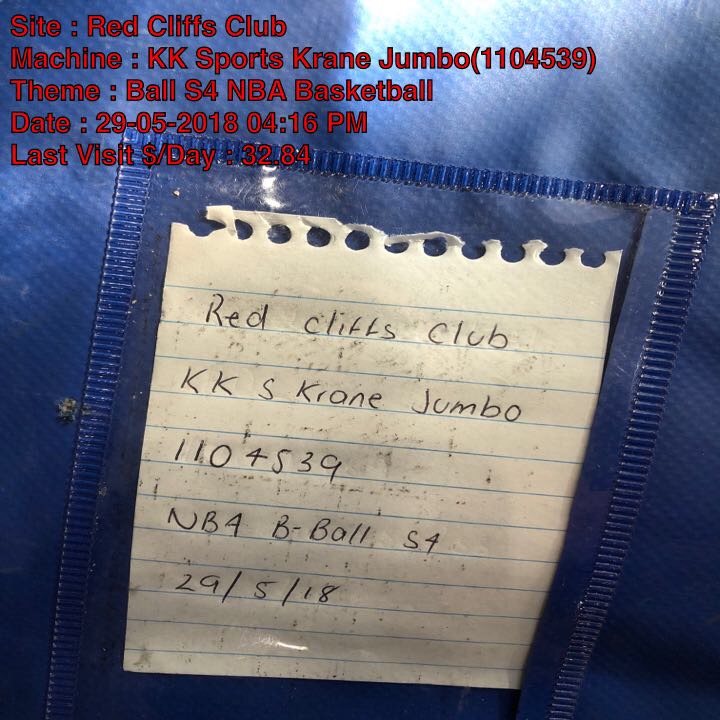 Site : Red Cliffs Club
Machine : KK Sports Krane Jumbo(1104539)
Theme : Ball S4 NBA Basketball
Date : 29-05-2018 04:16 PM
Last Visit $/Day : 32.84
Red Cliffs Club
KK S Krane Jumbo
1104539
NBA B-Ball S4
29/5/18